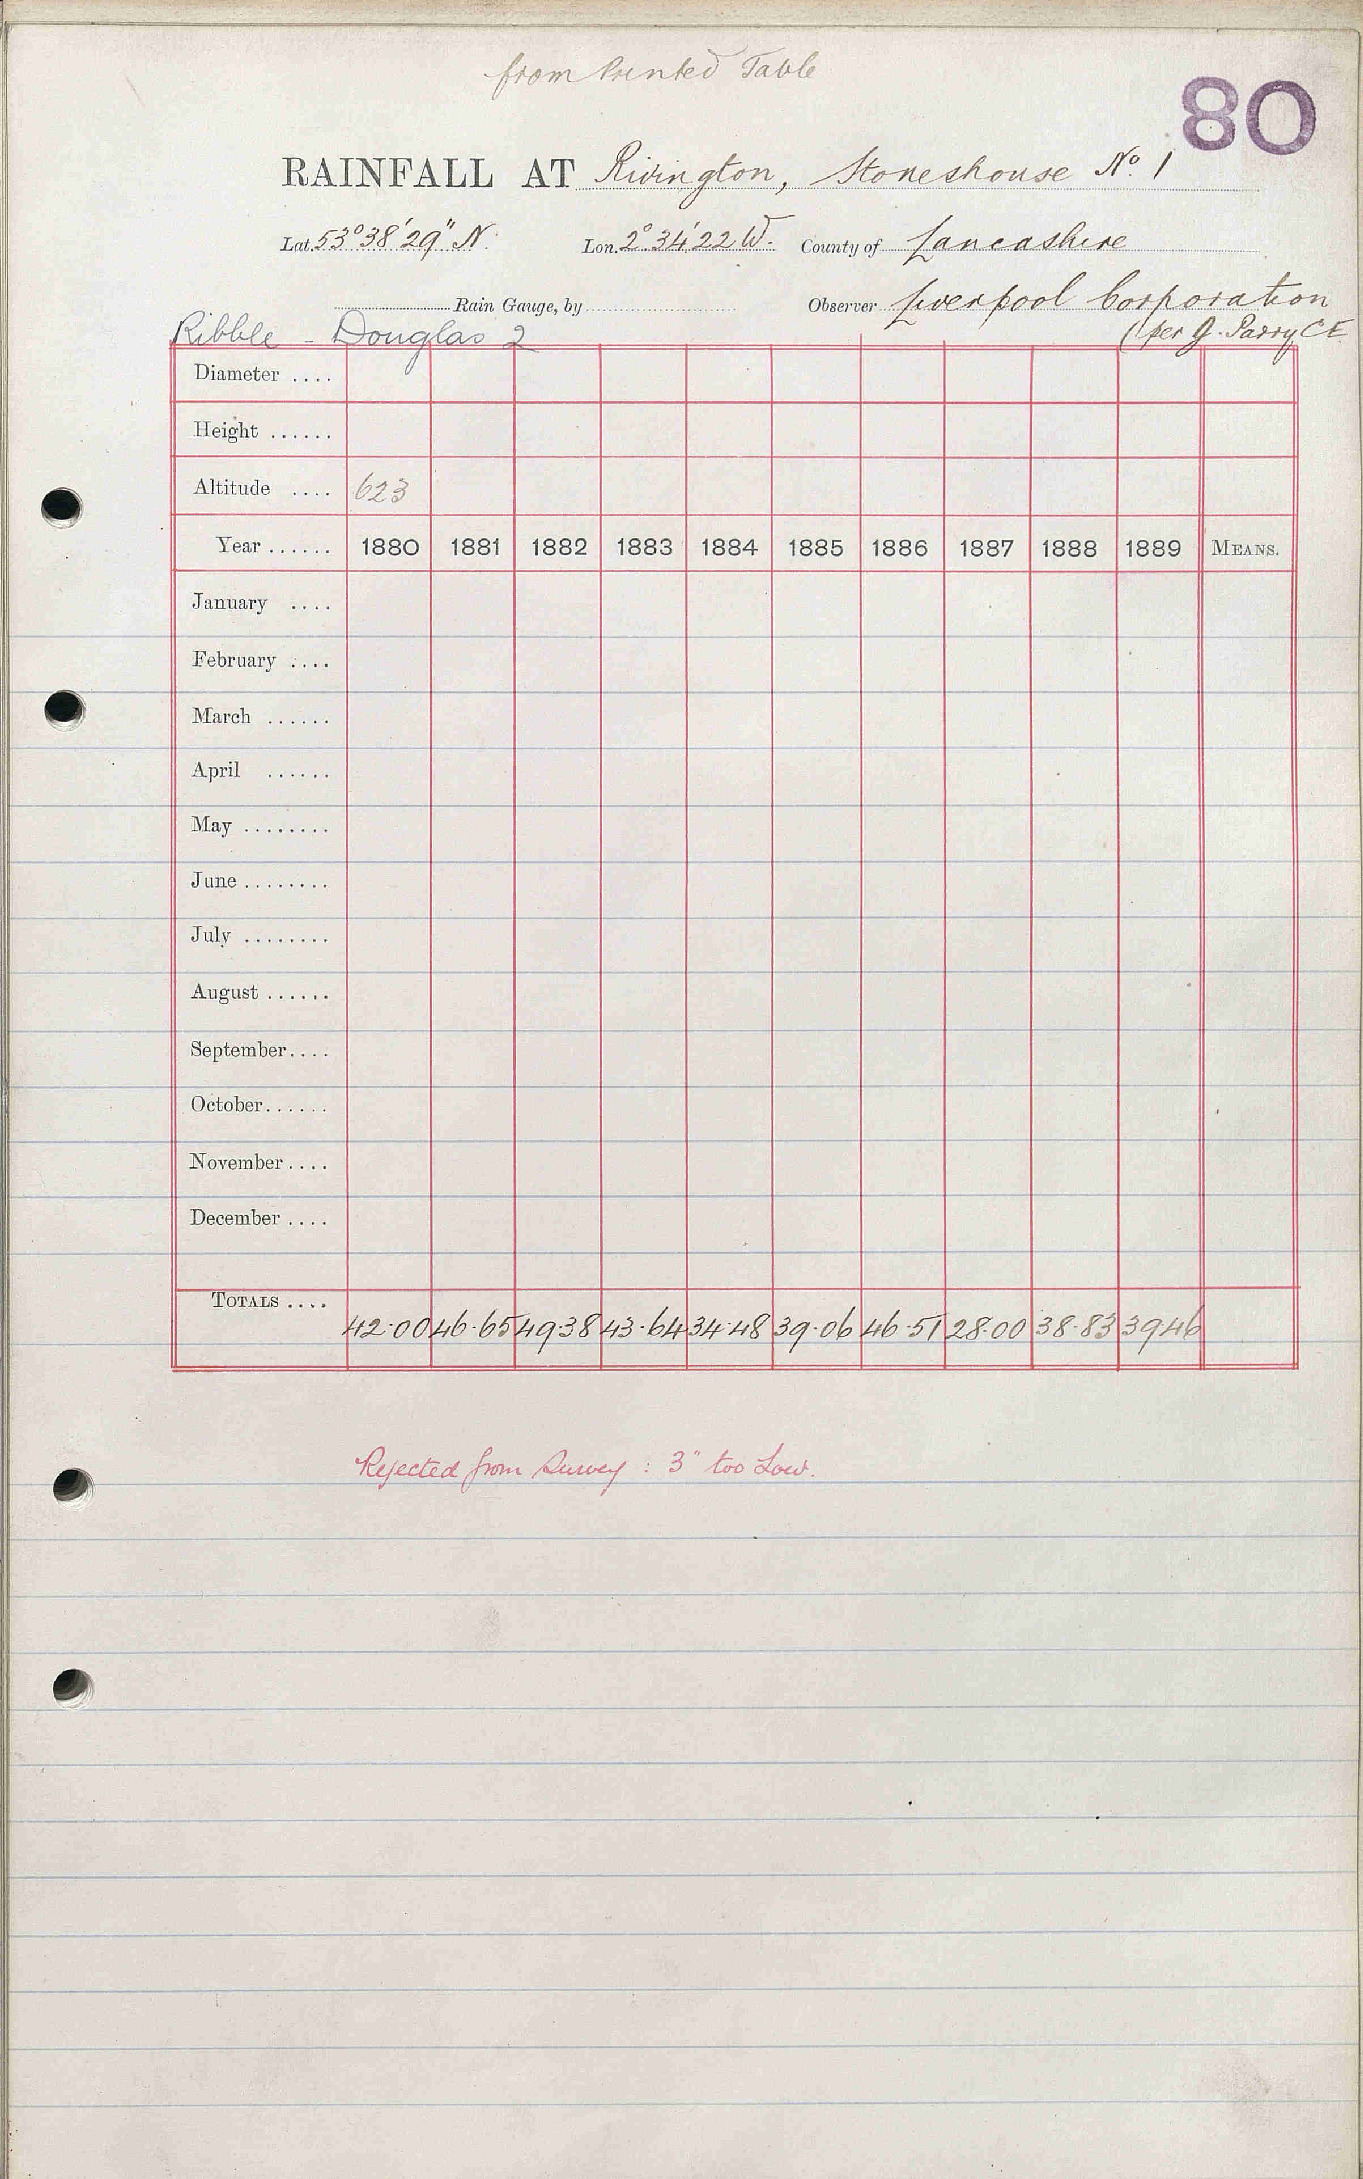 from Printed Table
80
RAINFALL AT Rivington, Stoneshouse No. 1
Lat. 53° 38' 29" N. Lon. 2° 34' 22 W. County of Lancashire
Rain Gauge, by Observer Liverpool Corporation
Ribble - Douglas 2 (per J. Parry C E
Diameter ....
Height ......
Altitude .... 623
Year ...... 1880 1881 1882 1883 1884 1885 1886 1887 1888 1889 MEANS.
January ....
February ....
March ......
April ......
May ........
June ........
July ........
August ......
September....
October......
November....
December ....
TOTALS ....
42.00 46.65 49.38 43.64 34.48 39.06 46.51 28.00 38.83 39.46
Rejected from Survey : 3" too Low.